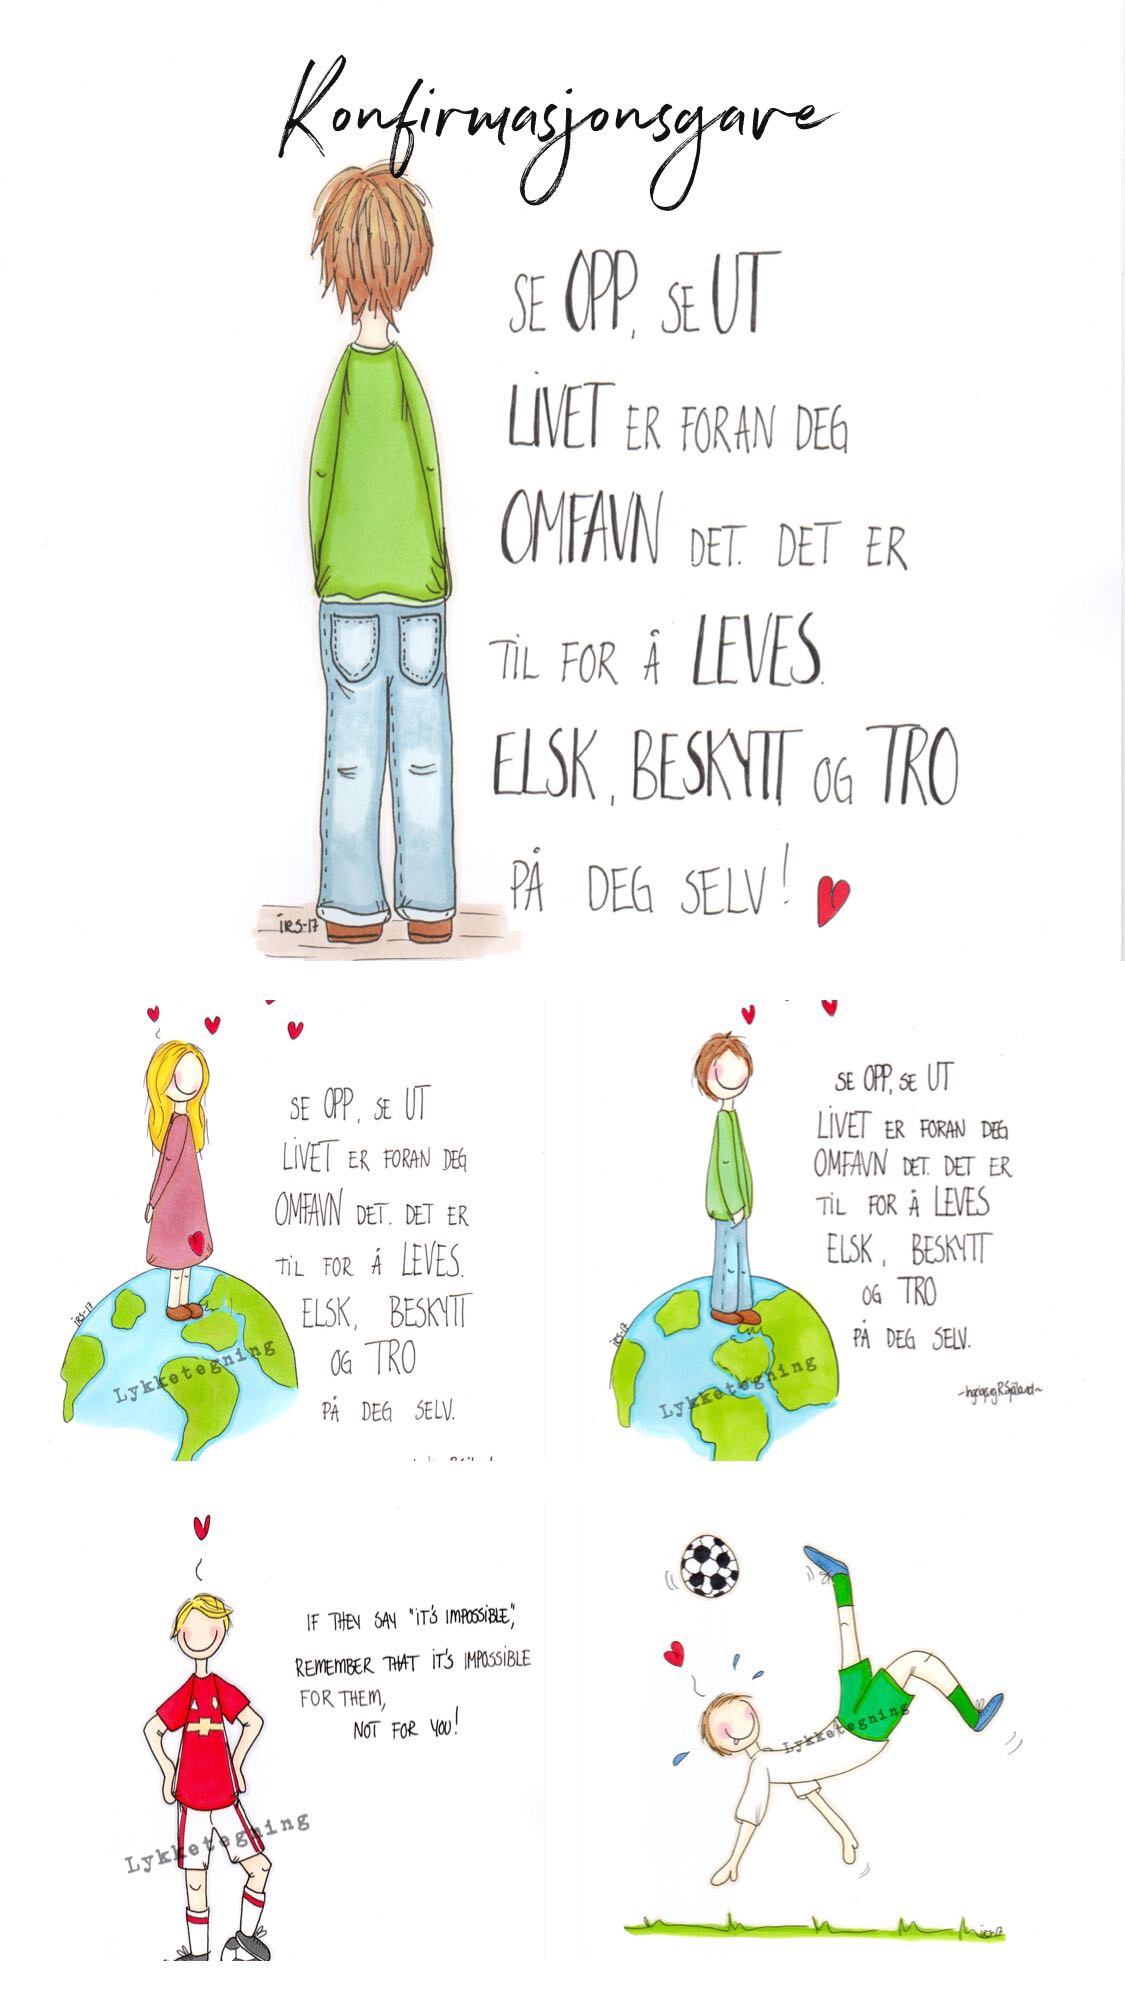 Konfirmasjonsgave
SE OPP, SE UT
LIVET ER FORAN DEG
OMFAVN DET. DET ER
TIL FOR Å LEVES.
ELSK, BESKYTT OG TRO
PÅ DEG SELV!
IRS-17
SE OPP, SE UT
LIVET ER FORAN DEG
OMFAVN DET. DET ER
TIL FOR Å LEVES.
ELSK, BESKYTT
OG TRO
PÅ DEG SELV.
IRS-17
Lykketegning
SE OPP, SE UT
LIVET ER FORAN DEG
OMFAVN DET. DET ER
TIL FOR Å LEVES
ELSK, BESKYTT
OG TRO
PÅ DEG SELV.
IRS-17
Lykketegning
IF THEY SAY "IT'S IMPOSSIBLE",
REMEMBER THAT IT'S IMPOSSIBLE
FOR THEM,
NOT FOR YOU!
Lykketegning
Lykketegning
IRS-17